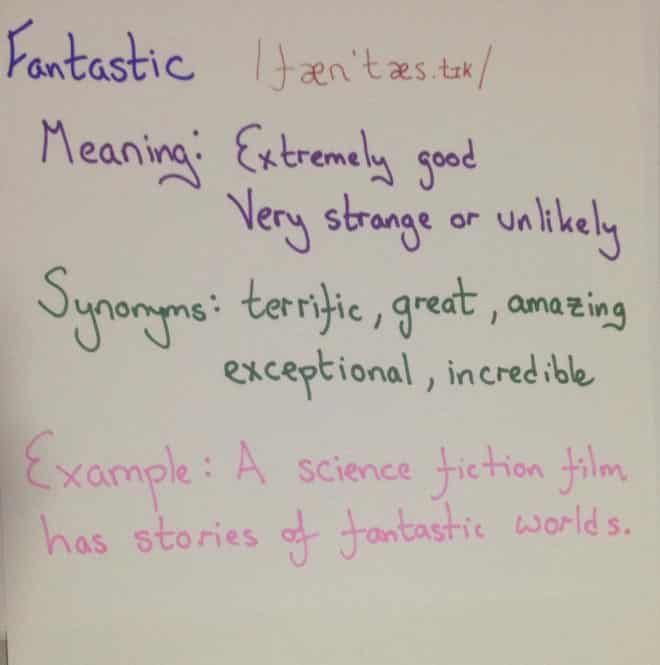 Fantastic /fæn'tæs.tɪk/
Meaning: Extremely good
Very strange or unlikely
Synonyms: terrific, great, amazing
exceptional, incredible
Example: A science fiction film
has stories of fantastic worlds.